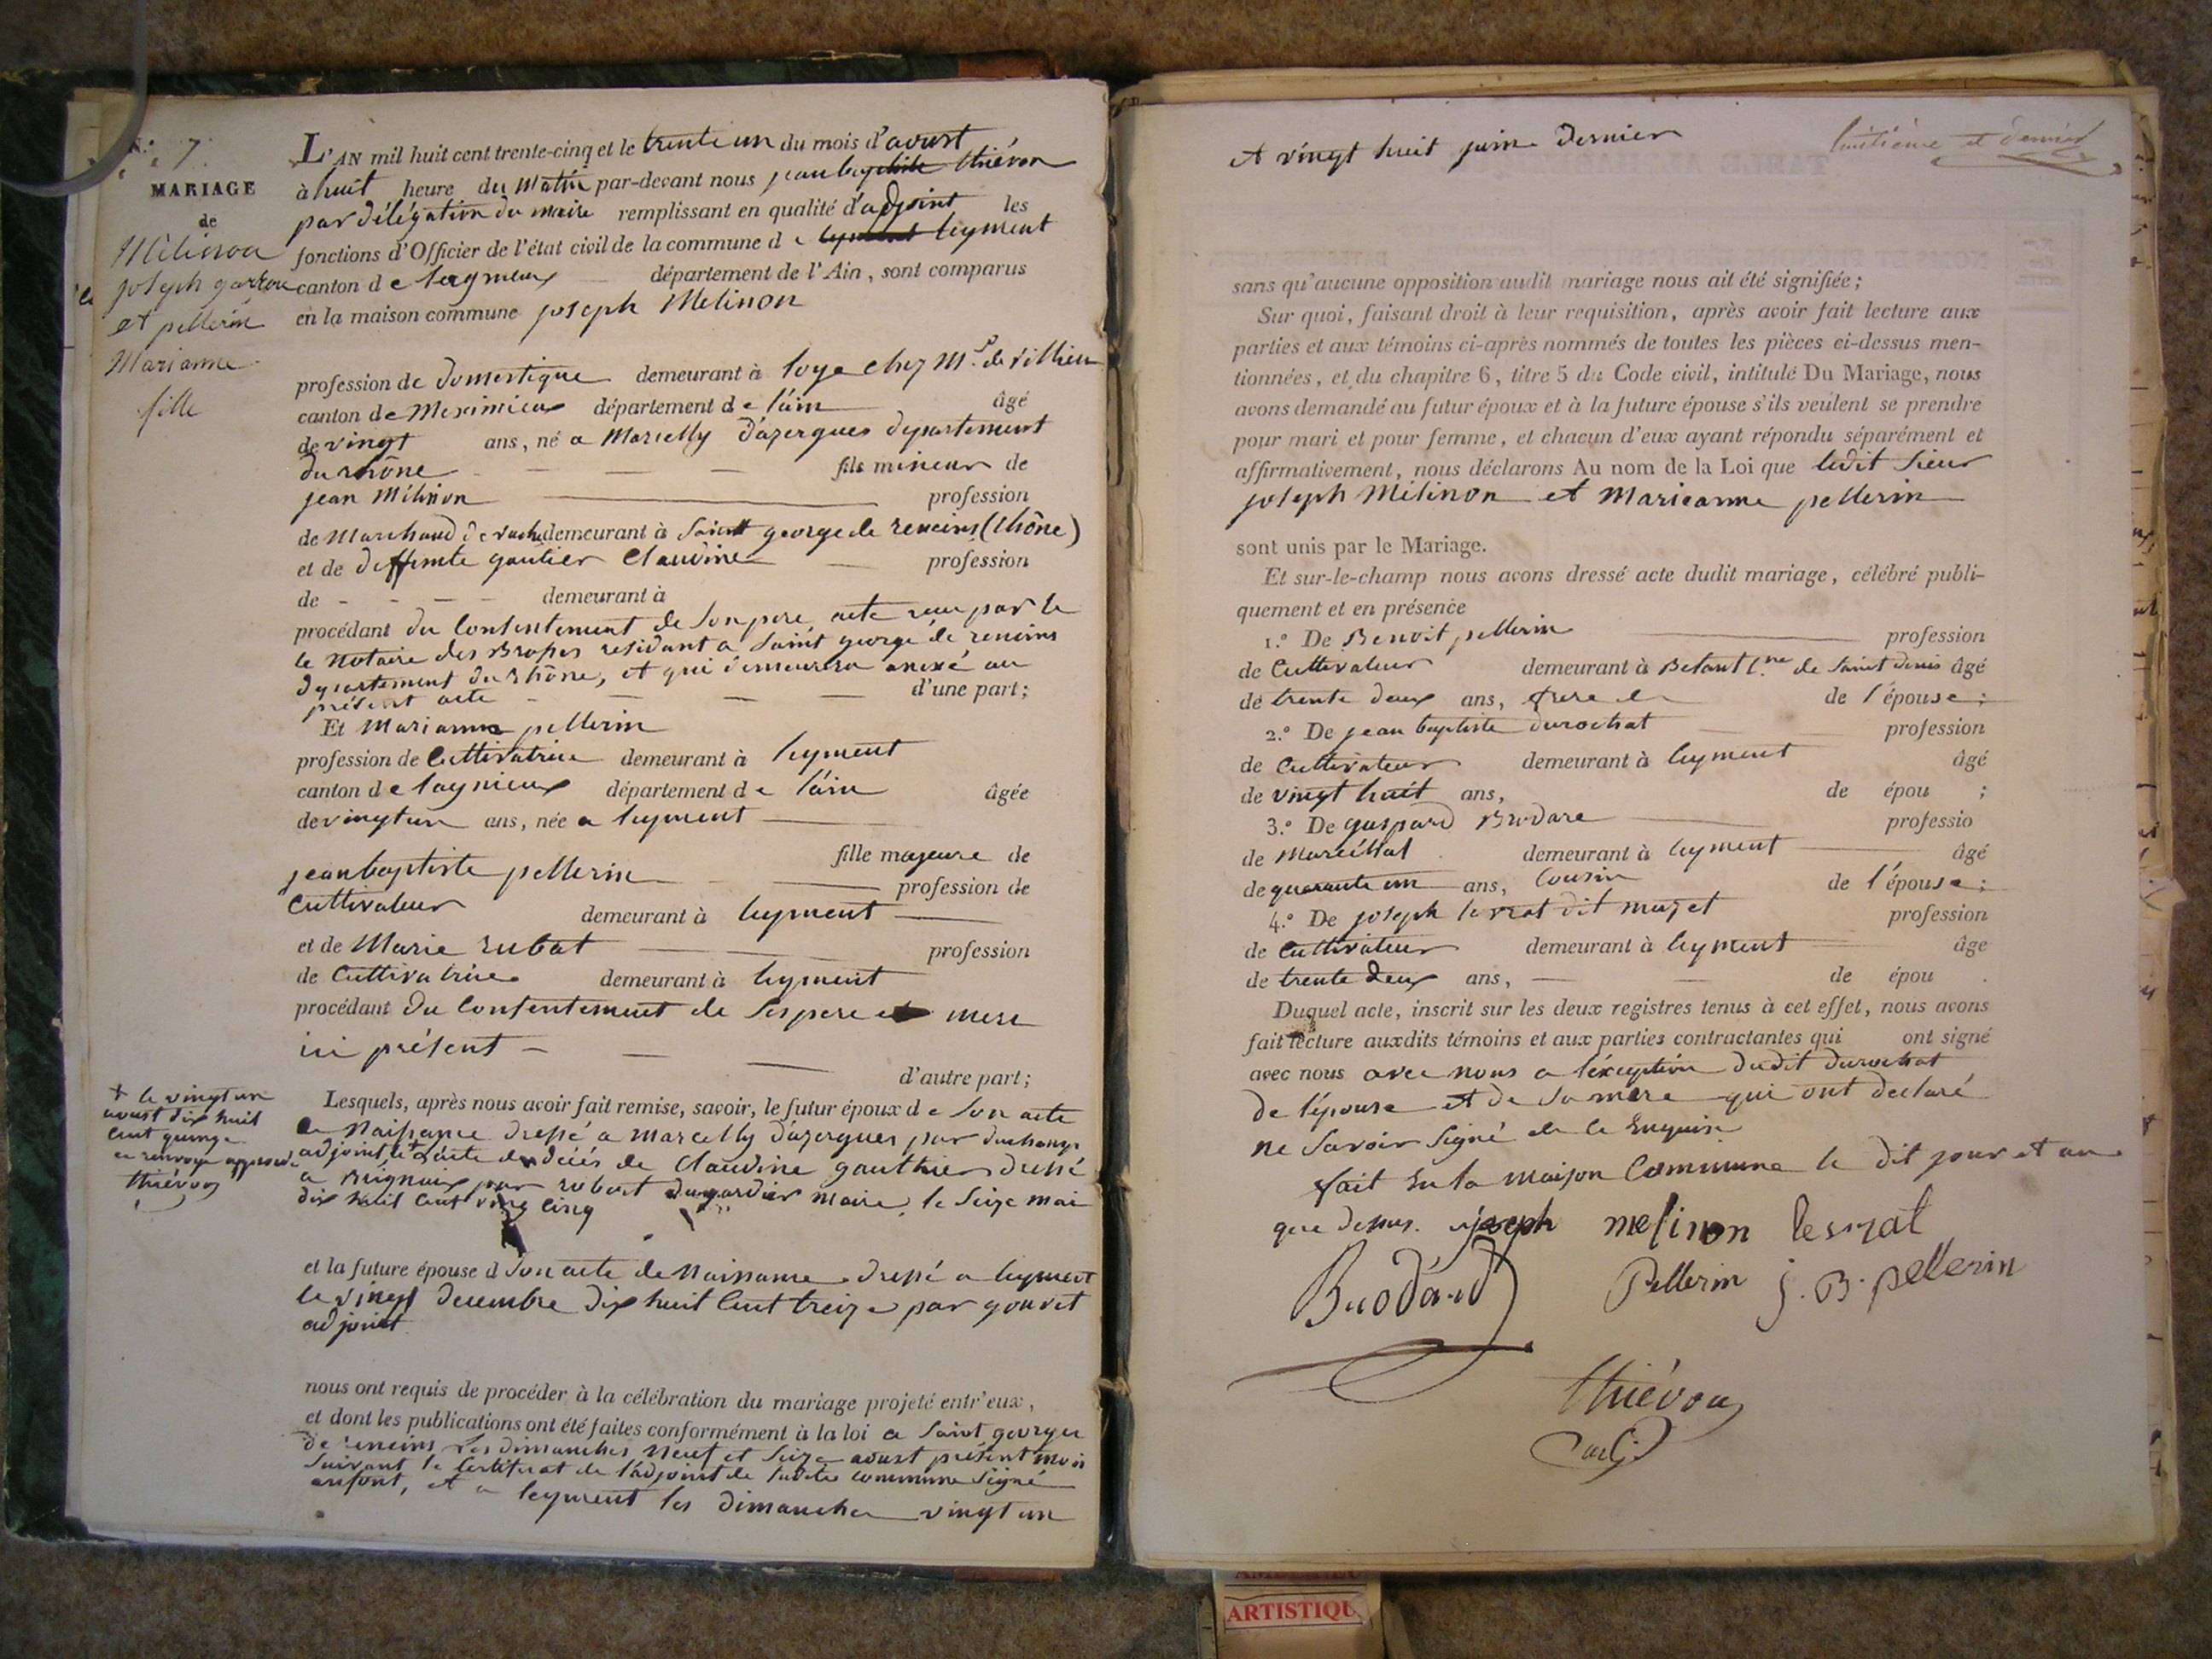 N.° 7
MARIAGE
de
Mélinon
joseph garçon
et pellerin
Marianne
fille
L'AN mil huit cent trente-cinq et le trente un du mois d'aoust
à huit heure du Matin par-devant nous jean baptiste thiévon
par délégation du maire remplissant en qualité d'adjoint les
fonctions d'Officier de l'état civil de la commune de leyment
canton de lagnieux département de l'Ain, sont comparus
en la maison commune joseph Melinon
profession de domestique demeurant à loye chez Mr. de Villieu
canton de Meximieux département de l'ain âgé
de vingt ans, né a Marcelly d'azergues departement
du rhône fils mineur de
jean Mélinon profession
de Marchand de vache demeurant à Saint george de reneins (rhône)
et de deffunte gautier Claudine profession
de demeurant à
procédant du Consentement de Son pere acte recu par le
le Notaire des Brosses residant a Saint george de reneins
departement du rhône, et qui demeurera anexé au
présent acte d'une part;
Et Marianne pellerin
profession de Cultivatrice demeurant à leyment
canton de lagnieux département de l'ain âgée
de vingt un ans, née a leyment
fille majeure de
jean baptiste pellerin profession de
Cultivateur demeurant à leyment
et de Marie rubat profession
de Cultivatrice demeurant à leyment
procédant du Consentement de Ses pere et mere
ici présent
d'autre part;
Lesquels, après nous avoir fait remise, savoir, le futur époux de Son acte
de Naissance dressé a Marcelly d'azergues par duchamp
adjoint, + l'acte de décés de Claudine gauthier dressé
a par robert dugardier maire, le Seize mai
dix huit Cent vingt Cinq
+ le vingt un
aoust dix huit
Cent quinze
ce renvoye approuvé
thiévon
et la future épouse d Son acte de Naissance dressé a leyment
le vingt decembre dix huit Cent treize par gouvet
adjoint
nous ont requis de procéder à la célébration du mariage projeté entr'eux,
et dont les publications ont été faites conformément à la loi a Saint george
de reneins les dimanches Neuf et Seize aoust présent mois
Suivant le Certificat de l'adjoint de ladite commune Signé
, et a leyment les dimanche vingt un
et vingt huit juin dernier
huitième et dernier
sans qu'aucune opposition audit mariage nous ait été signifiée;
Sur quoi, faisant droit à leur requisition, après avoir fait lecture aux
parties et aux témoins ci-après nommés de toutes les pièces ci-dessus men-
tionnées, et du chapitre 6, titre 5 du Code civil, intitulé Du Mariage, nous
avons demandé au futur époux et à la future épouse s'ils veulent se prendre
pour mari et pour femme, et chacun d'eux ayant répondu séparément et
affirmativement, nous déclarons Au nom de la Loi que ledit Sieur
joseph Mélinon et Marieanne pellerin
sont unis par le Mariage.
Et sur-le-champ nous avons dressé acte dudit mariage, célébré publi-
quement et en présence
1.° De Benoit pellerin profession
de Cultivateur demeurant à Betant Cne de Saint Denis âgé
de trente deux ans, frere de de l'épouse;
2.° De jean baptiste durochat profession
de Cultivateur demeurant à leyment âgé
de vingt huit ans, de épou ;
3.° De gaspard Brodare professio
de Maréchal demeurant à leyment âgé
de quarante un ans, Cousin de l'épouse;
4.° De joseph lesrat dit muzet profession
de Cultivateur demeurant à leyment âge
de trente deux ans, de épou .
Duquel acte, inscrit sur les deux registres tenus à cet effet, nous avons
fait lecture auxdits témoins et aux parties contractantes qui ont signé
avec nous avec nous a l'éxception dudit durochat
de l'épouse et de Sa mere qui ont declaré
ne Savoir Signé de ce Enquis
fait en la maison Commune le dit jour et an
que dessus. joseph melinon lesrat
Brodard Pellerin j. B. pellerin
thiévon
adj.
ARTISTIQU